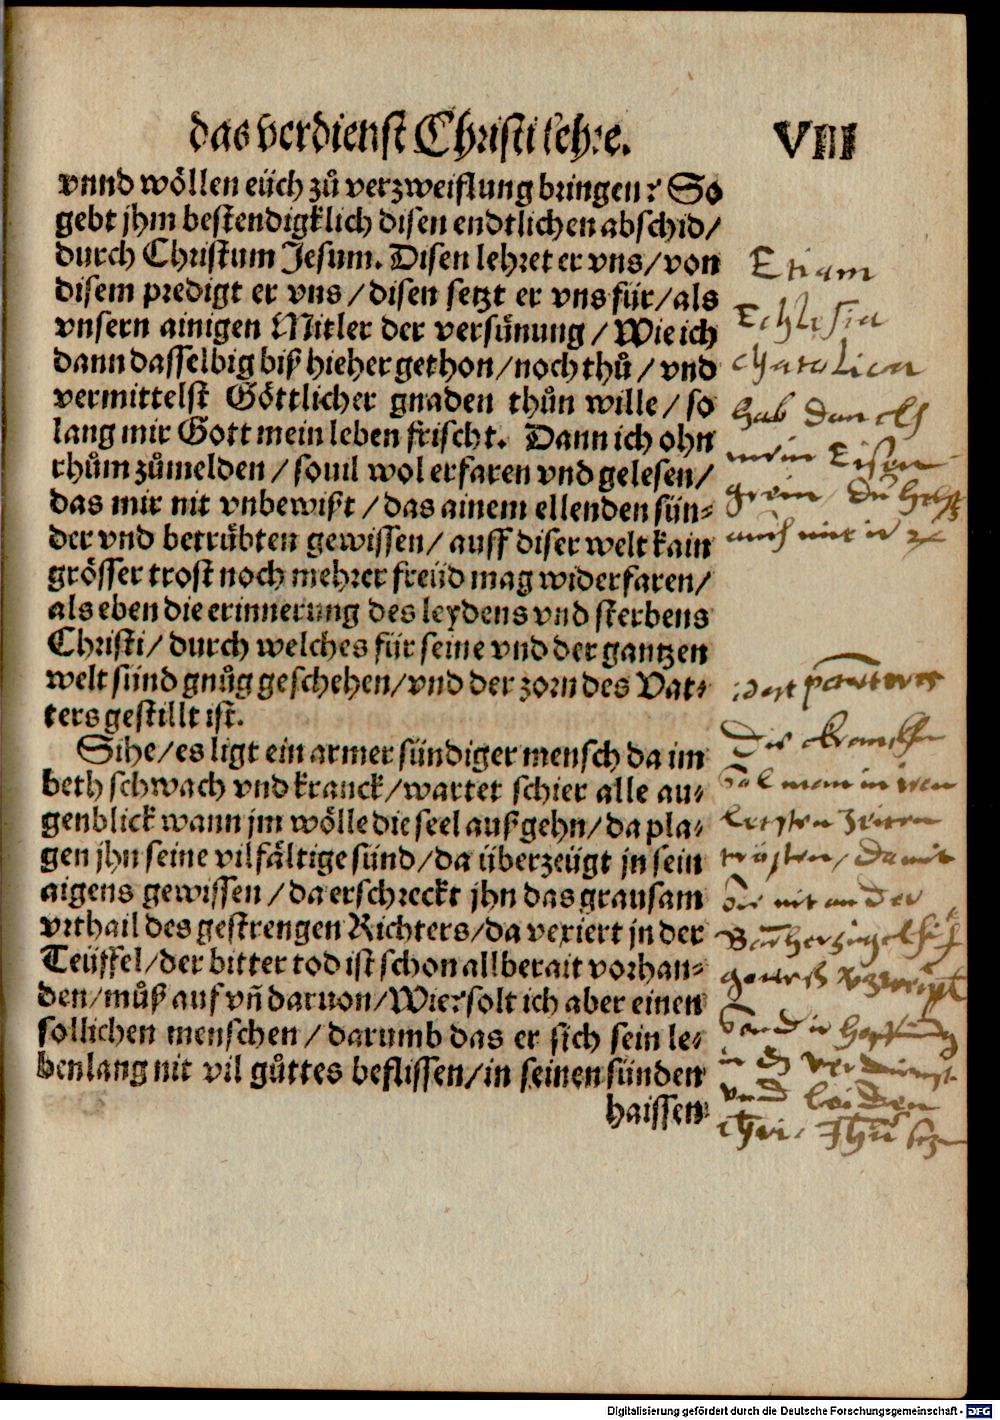 das verdienst Christi lehre. VIII
vnnd wöllen eüch zů verzweiflung bringen? So
gebt jhm bestendigklich disen endtlichen abschid/
durch Christum Jesum. Disen lehret er vns/von
disem predigt er vns/disen setzt er vns für/als
vnsern ainigen Mitler der versünung/Wie ich
dann dasselbig biß hieher gethon/noch thů/vnd
vermittelst Göttlicher gnaden thůn wille/so
lang mir Gott mein leben frischt. Dann ich ohn
rhům zůmelden/souil wol erfaren vnd gelesen/
das mir nit vnbewißt/das ainem ellenden sün⸗
der vnd betrübten gewissen/auff diser welt kain
grösser trost noch mehrer freüd mag widerfaren/
als eben die erinnerung des leydens vnd sterbens
Christi/durch welches für seine vnd der gantzen
welt sünd gnůg geschehen/vnd der zorn des Vat⸗
ters gestillt ist.
Sihe/es ligt ein armer sündiger mensch da im
beth schwach vnd kranck/wartet schier alle au⸗
genblick wann jm wölle die seel außgehn/da pla⸗
gen jhn seine vilfältige sünd/da überzeügt jn sein
aigens gewissen/da erschreckt jhn das grausam
vrthail des gestrengen Richters/da vexiert jn der
Teüffel/der bitter tod ist schon allberait vorhan⸗
den/můß auf vñ daruon/Wie? solt ich aber einen
sollichen menschen/darumb das er sich sein le⸗
benlang nit vil gůttes beflissen/in seinen sünden
haissen
Etiam
Echlesia
chatolica
hab danckh
mein Eisen
grein, du helst
auch mit ir
Die krancken
sol man in iren
letzsten Zeiten
trösten, damit
sie nit an der
vnd leiden
Digitalisierung gefördert durch die Deutsche Forschungsgemeinschaft - DFG